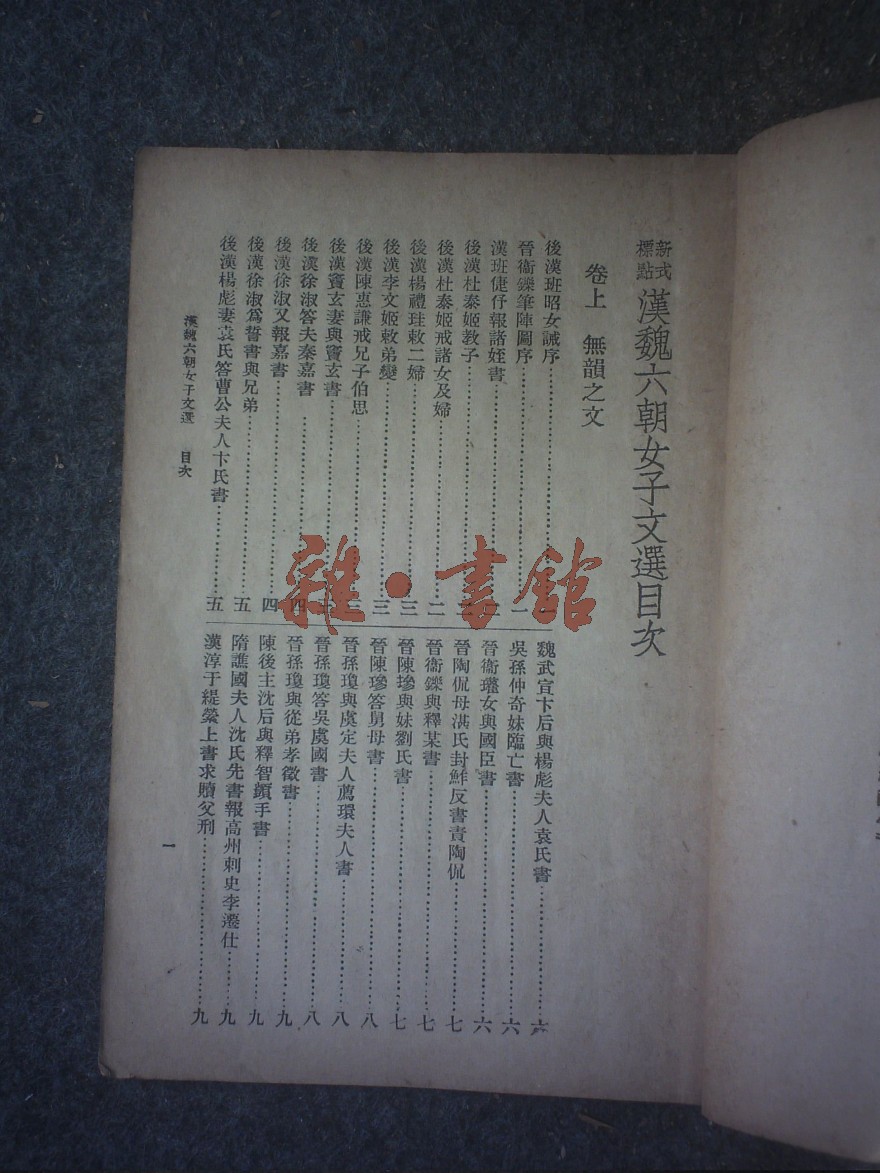 新式標點 漢魏六朝女子文選目次
卷上 無韻之文
後漢班昭女誡序
晉衞鑠筆陣圖序……一
漢班倢伃報諸姪書
後漢杜泰姬教子
後漢杜泰姬戒諸女及婦……二
後漢楊禮珪敕二婦……三
後漢李文姬敕弟變……三
後漢陳惠謙戒兄子伯思
後漢竇玄妻與竇玄書
後漢徐淑答夫秦嘉書……四
後漢徐淑又報嘉書……四
後漢徐淑爲誓書與兄弟……五
後漢楊彪妻袁氏答曹公夫人卞氏書……五
魏武宣卞后與楊彪夫人袁氏書……六
吳孫仲奇妹臨亡書……六
晉衞瓘女與國臣書……六
晉陶侃母湛氏封鮮反書責陶侃……七
晉衞鑠與釋某書……七
晉陳墋與妹劉氏書……七
晉陳墋答舅母書……八
晉孫瓊與虞定夫人薦環夫人書……八
晉孫瓊答吳虞國書……八
晉孫瓊與從弟孝徵書……九
陳後主沈后與釋智顗手書……九
隋譙國夫人沈氏先書報高州刺史李遷仕……九
漢淳于緹縈上書求贖父刑……九
漢魏六朝女子文選 目次
一
雜·書館